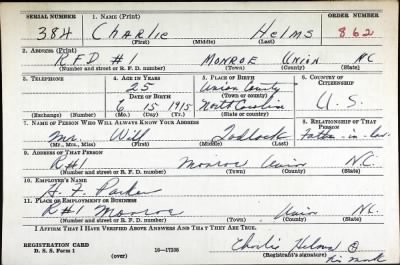 SERIAL NUMBER 1. NAME (Print) ORDER NUMBER
384 Charlie Helms 862
(First) (Middle) (Last)
2. ADDRESS (Print)
RFD #1 Monroe Union NC
(Number and street or R. F. D. number) (Town) (County) (State)
3. TELEPHONE 4. AGE IN YEARS 5. PLACE OF BIRTH 6. COUNTRY OF CITIZENSHIP
25 Union County
(Town or county)
DATE OF BIRTH
6 15 1915 North Carolina U. S.
(Exchange) (Number) (Mo.) (Day) (Yr.) (State or country)
7. NAME OF PERSON WHO WILL ALWAYS KNOW YOUR ADDRESS 8. RELATIONSHIP OF THAT PERSON
Mr. Will Father-in-law
(Mr., Mrs., Miss) (First) (Middle) (Last)
9. ADDRESS OF THAT PERSON
R#1 Monroe Union NC.
(Number and street or R. F. D. number) (Town) (County) (State)
10. EMPLOYER'S NAME
Parker
11. PLACE OF EMPLOYMENT OR BUSINESS
R#1 Monroe Union NC.
(Number and street or R. F. D. number) (Town) (County) (State)
I AFFIRM THAT I HAVE VERIFIED ABOVE ANSWERS AND THAT THEY ARE TRUE.
REGISTRATION CARD
D. S. S. Form 1 16—17105 Charlie Helms
(over) (Registrant's signature) his mark